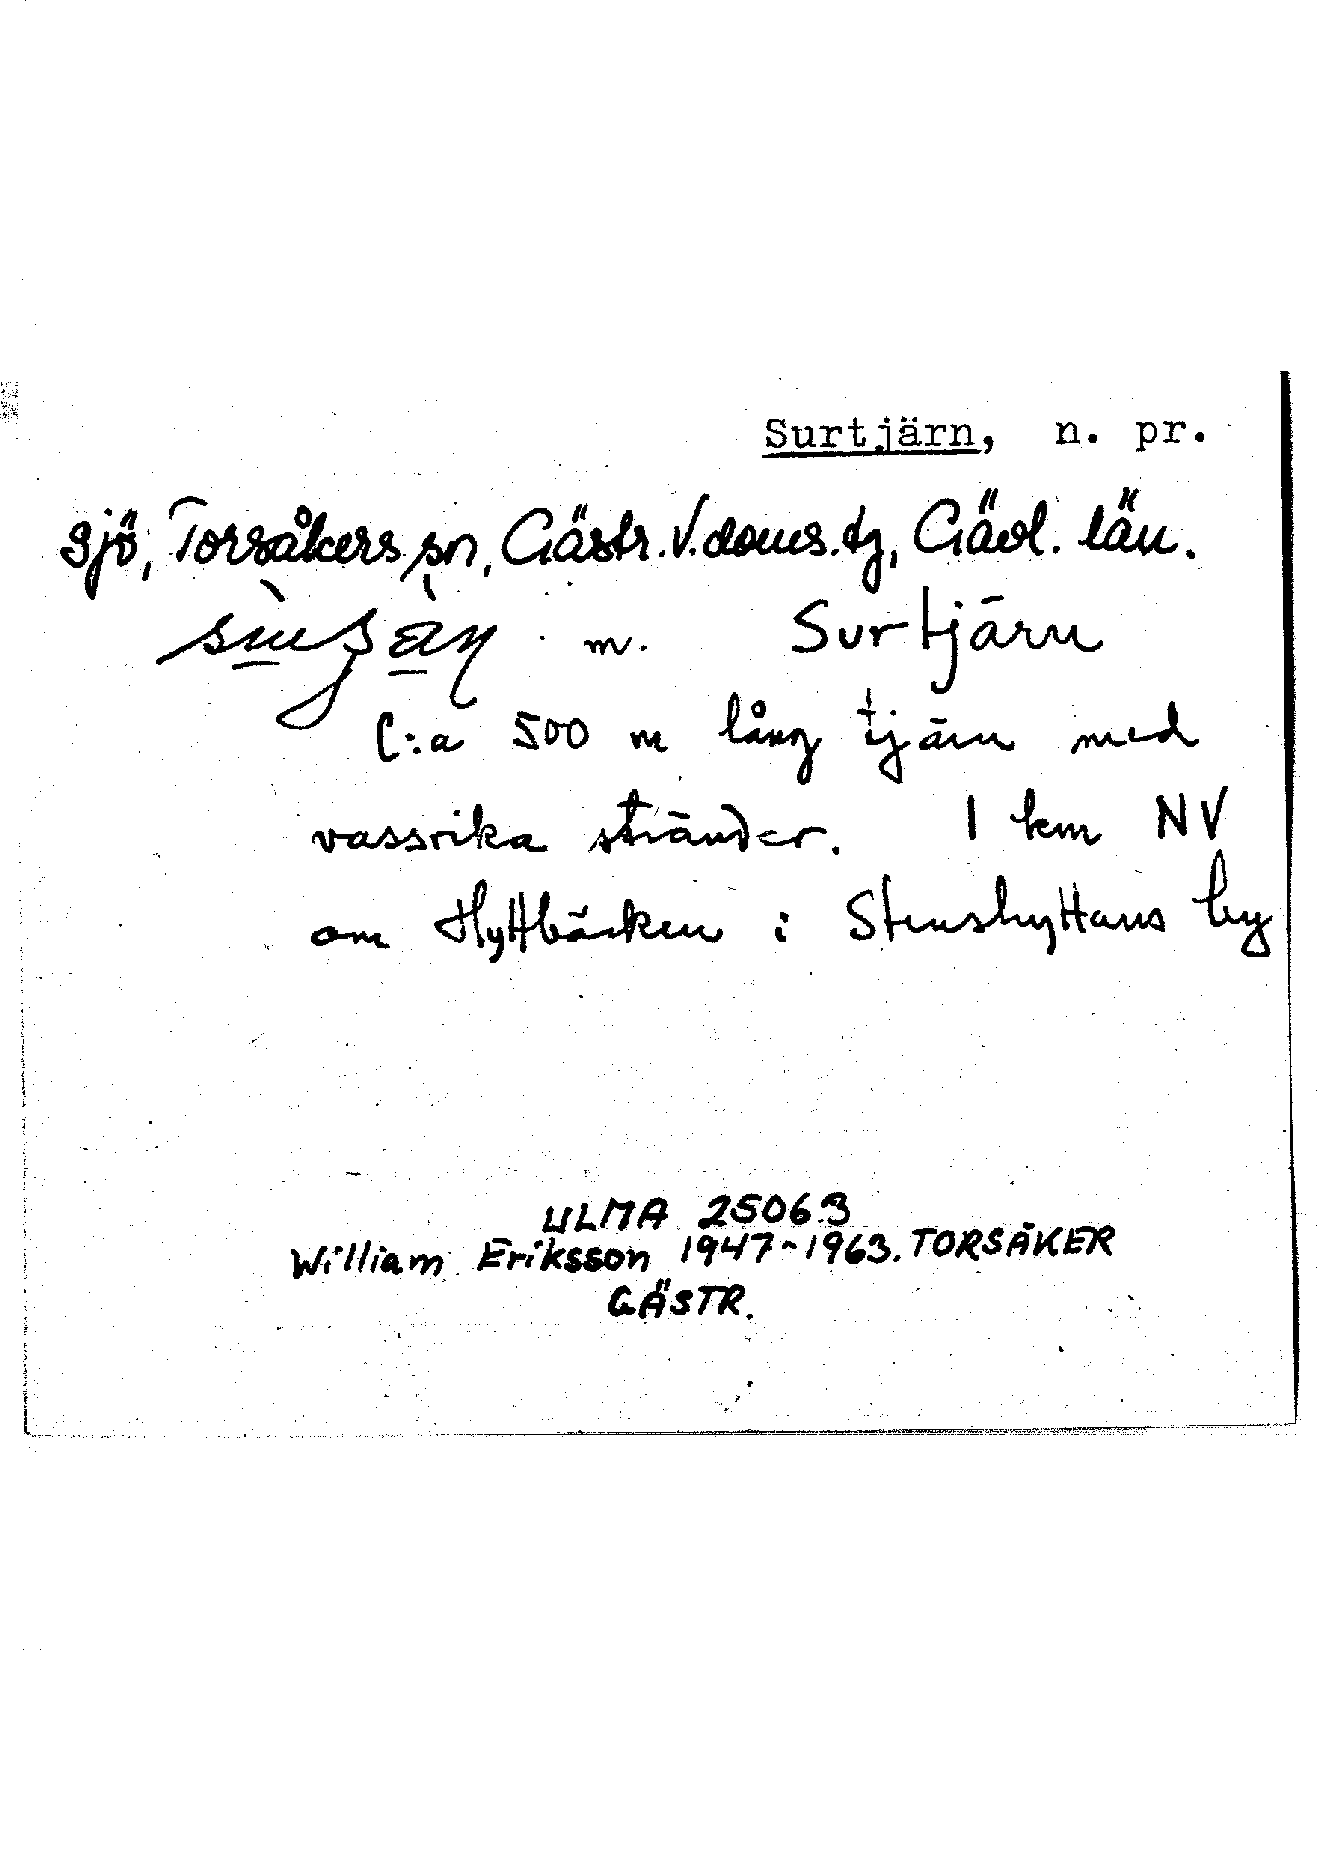 Surtjärn, n. pr.
Sjö, Torsåkers sn, Gästr. V. doms. tg, Gävl. län.
m. Surtjärn
C:a 500 m lång tjärn med
vassrika stränder. 1 km NV
om Hyttbäcken i Stenshyttans by
ULMA 25063
William Eriksson 1947-1963. TORSÅKER
GÄSTR.